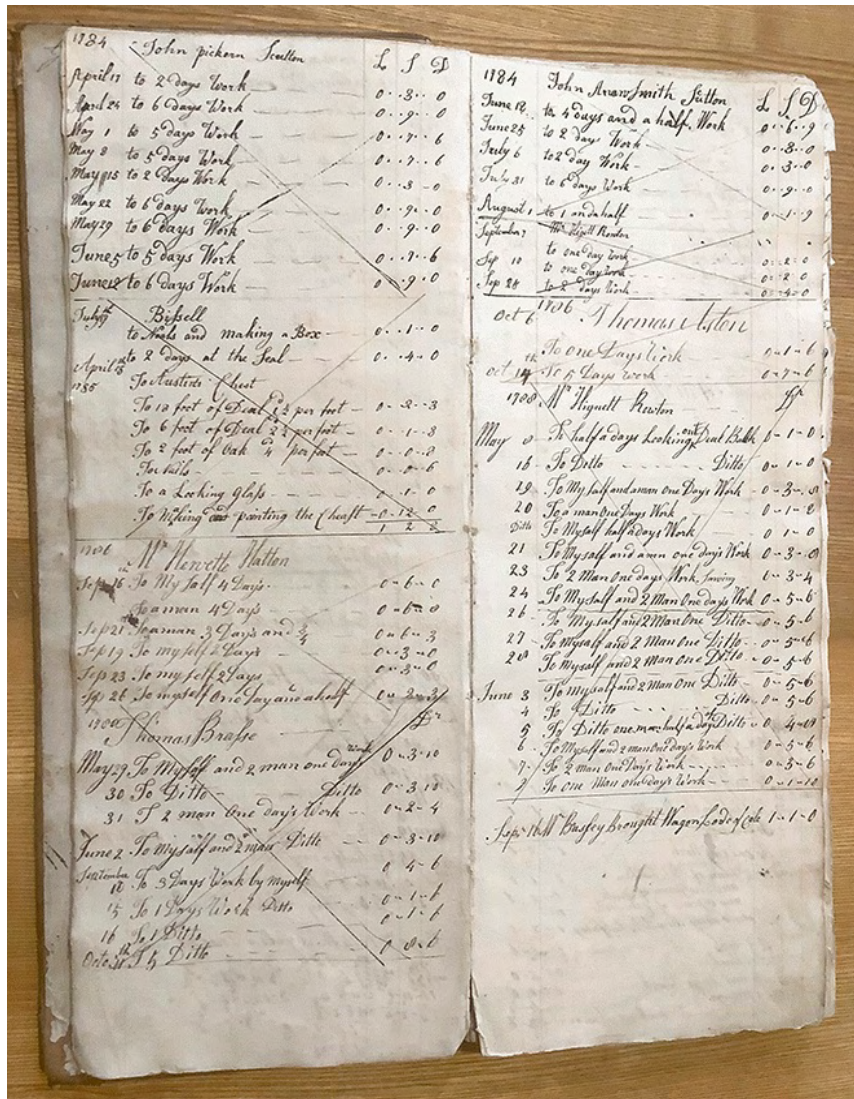 1784 John pickern Scutton L S D
April 17 to 2 days Work 0..3..0
April 24 to 6 days Work 0..9..0
May 1 to 5 days Work 0..7..6
May 8 to 5 days Work 0..7..6
May 15 to 2 days Work 0..3..0
May 22 to 6 days Work 0..9..0
May 29 to 6 days Work 0..9..0
June 5 to 5 days Work 0..7..6
June 12 to 6 days Work 0..9..0
July Bissell
to Nails and making a Box 0..1..0
to 2 days at the Seal 0..4..0
April 18th To Austins Chest
1785
To 18 foot of Deal 1½d per foot 0-2-3
To 6 foot of Deal 2½d per foot 0-1-3
To 2 foot of Oak 4d per foot 0-0-8
For nails 0-0-6
To a Looking Glass 0-1-0
To Making and painting the Cheast 0-12-0
1 2
1786 Mr Hewette Hatton
Sep 16 To My Self 4 Days 0-6-0
To a man 4 Days 0-6-8
Sep 21 To a man 3 Days and ¾ 0-6-3
Sep 19 To my self 2 Days 0-3-0
Sep 23 To my self 2 Days 0-3-0
Sep 26 To myself One Day and a half 0-2-3
Thomas Brasse Dr
May 29 To Myself and 2 man one days Work 0-3-10
30 To Ditto Ditto 0-3-10
31 T 2 man One day's Work 0-2-4
June 2 To myself and 2 man Ditto 0-3-10
September
18 To 3 Days Work by myself 0 4-6
15 To 1 Days Work Ditto 0-1-6
16 To 1 Ditto 0-1-6
Octo T 5 Ditto 0
1784 John Arrowsmith Sutton L S D
June 18 to 4 days and a half Work 0..6..9
June 25 to 2 day Work 0..3..0
July 6 to 2 day Work 0..3..0
July 31 to 6 days Work 0..9..0
August 1 to 1 and a half 0..1..9
September 7 Mr Hignett Rowton
Sep 10 to one day Work 0..2..0
to one day Work 0..2..0
Sep 28 to 2 days Work 0..4..0
Oct 6 1786 Thomas Aston
To one Days Work 0-1-6
Oct 14th To 5 Days work 0-7-6
1788 Mr Hignett Rowton Dr
May 8 To half a days Looking out Deal 0-1-0
16 To Ditto Ditto 0-1-0
19 To My self and a man One Days Work 0-3-8
20 To a man One Days Work 0-1-8
Ditto To Myself half a days Work 0 1-0
21 To Myself and a man one days Work 0-3-8
23 To 2 Man One days Work, Sawing 0-3-4
24 To My self and 2 Man One days Work 0-5-6
26 To My self and 2 Man One Ditto 0-5-6
27 To Myself and 2 man One Ditto 0-5-6
28 To Myself and 2 man One Ditto 0-5-6
June 3 To Myself and 2 man One Ditto 0-5-6
4 To Ditto Ditto 0-5-6
5 To Ditto one man half a day Ditto 0
6 To Myself and 2 man One days Work 0-5-6
7 To 2 man One Days Work 0-3-6
7 To One Man One days Work 0-1-10
Sepr 16 Mr Busfey Brought Wagon Lode of Cole 1-1-0